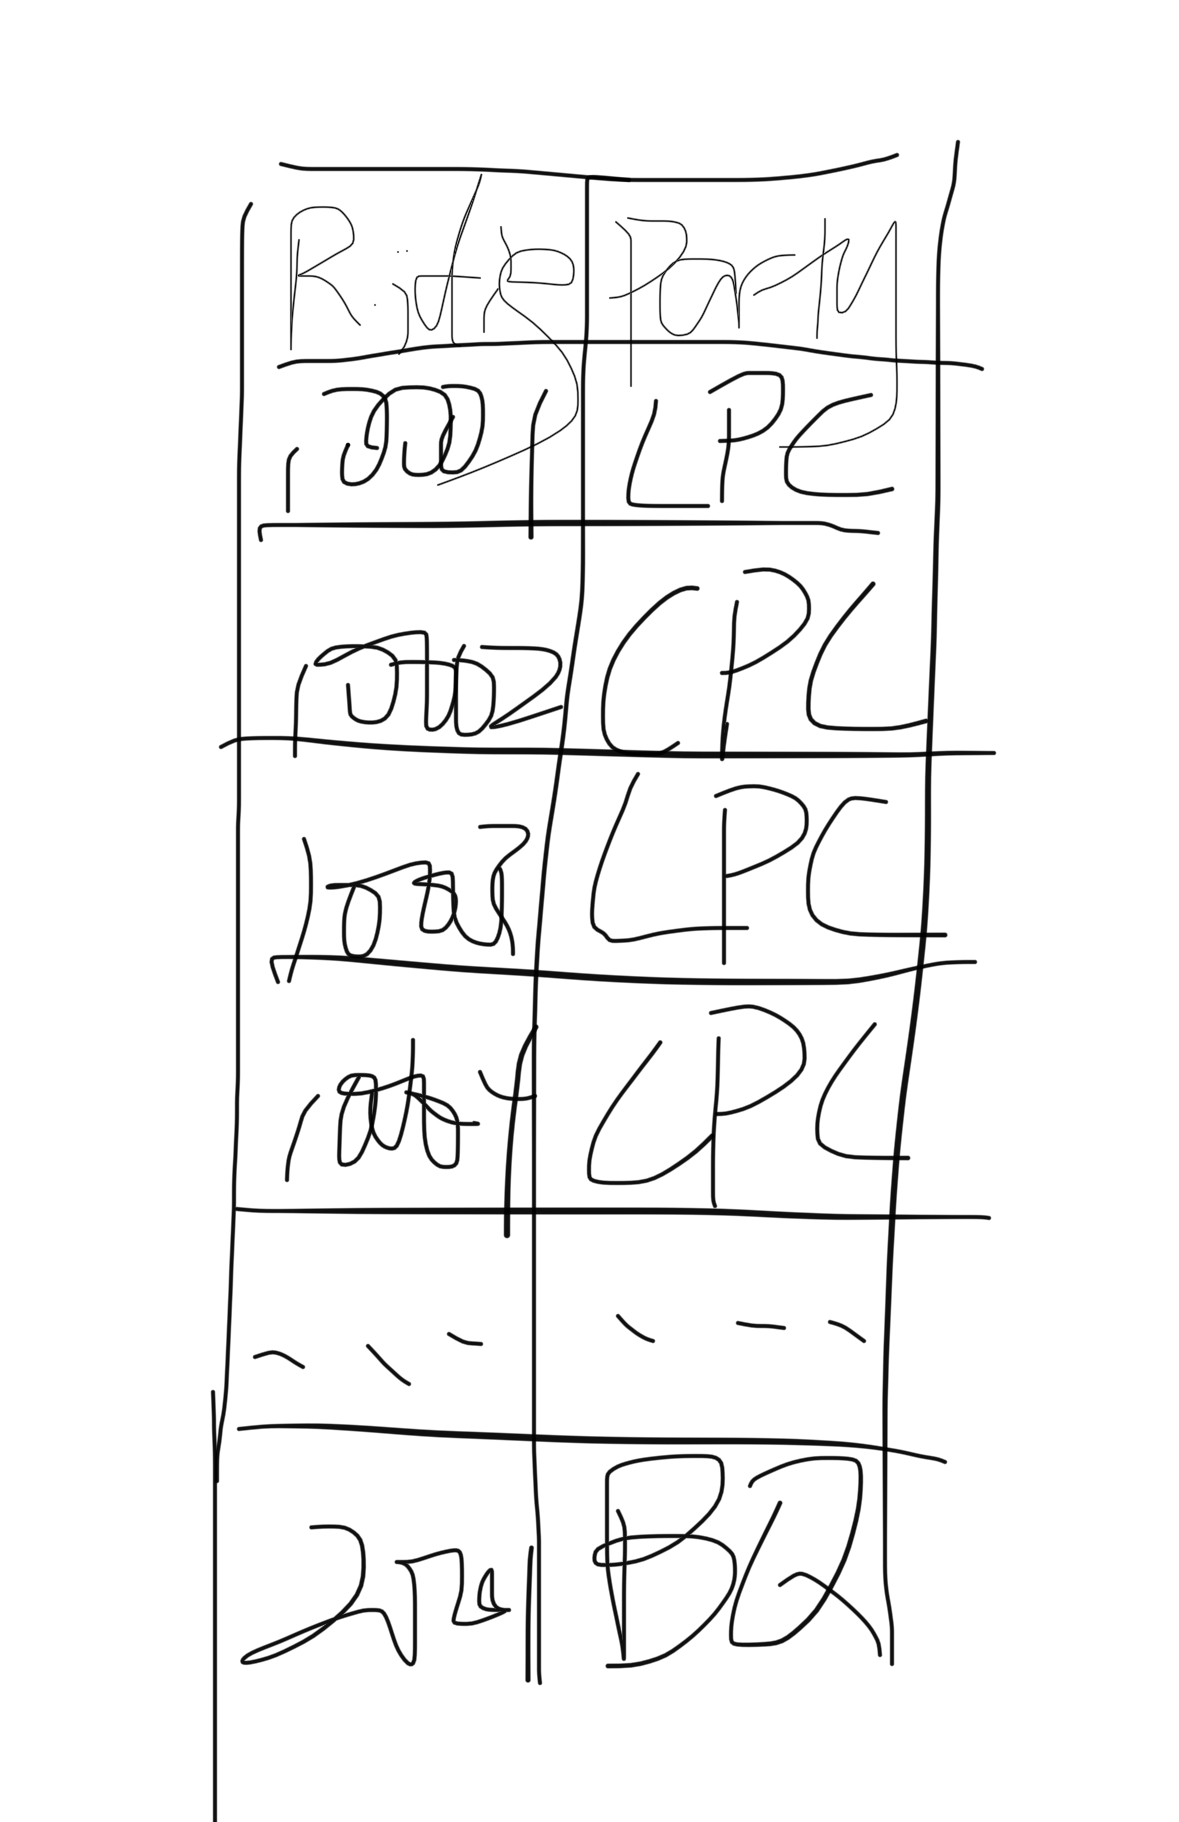 Riding Party
10001 LPC
10002 CPC
10003 LPC
10004 LPC
- - - - - -
BQ